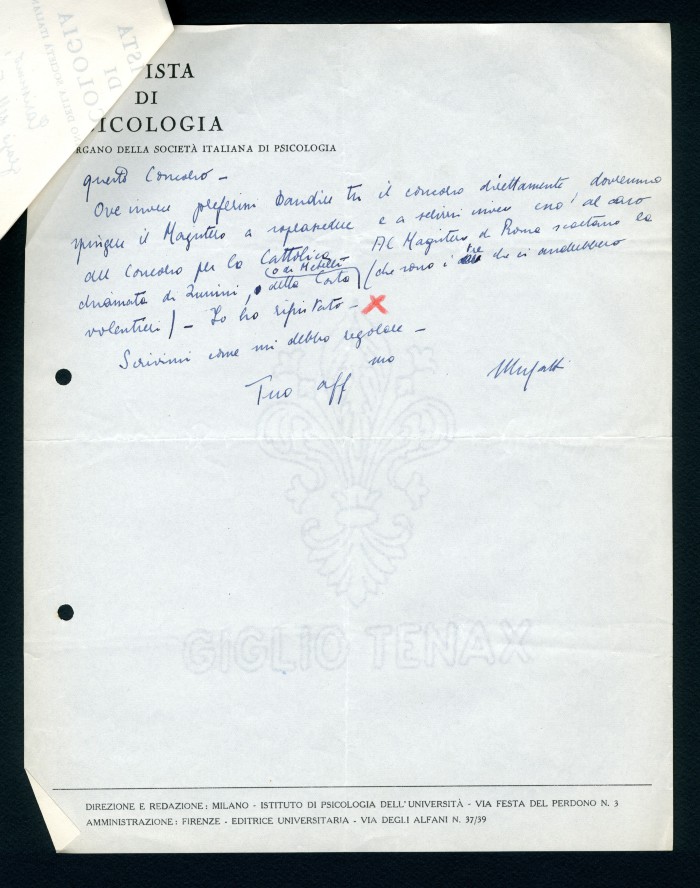 ISTA
DI
ICOLOGIA
RGANO DELLA SOCIETÀ ITALIANA DI PSICOLOGIA
questo Concorso –
Ove invece preferissi bandire tu il concorso direttamente dovremmo
spingere il Magistero a soprassedere e a servirsi invece
del Concorso per la Cattolica Al Magistero di Roma la
chiamata di Zunini, o della Casta (che sono i tre che ci andrebbero
o di Metelli
volentieri) – Io ho rifiutato – X
Scrivimi come mi debbo regolare –
Tuo aff mo
Musatti
GIGLIO TENAX
DIREZIONE E REDAZIONE: MILANO - ISTITUTO DI PSICOLOGIA DELL'UNIVERSITÀ - VIA FESTA DEL PERDONO N. 3
AMMINISTRAZIONE: FIRENZE - EDITRICE UNIVERSITARIA - VIA DEGLI ALFANI N. 37/39